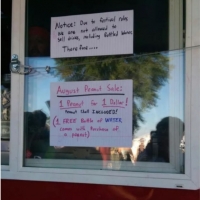 Notice! Due to festival rules
We are not allowed to
sell drinks, including Bottled Water.
Therefore....
August Peanut Sale:
1 Peanut for 1 Dollar!
Peanut Shell INCLUDED!
(1 FREE Bottle of WATER
comes with purchase of
a peanut)